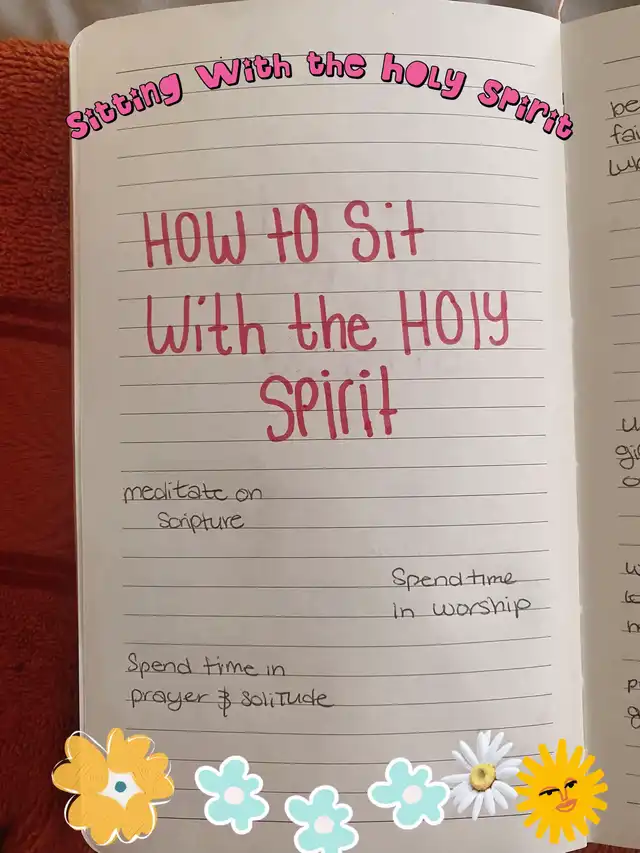 Sitting With the holy Spirit
HOW to Sit
With the HOly
Spirit
meditate on
Scripture
Spend time
in worship
Spend time in
prayer & Solitude
be